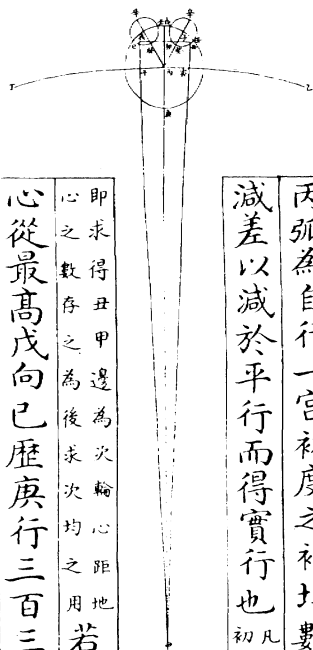 丙弧為自行一宮初度之初均數
減差以減於平行而得實行也
凡
初
即求得丑甲邊為次輪心距地
心之數存之為後求次均之用
若
心從最高戊向己歷庚行三百三